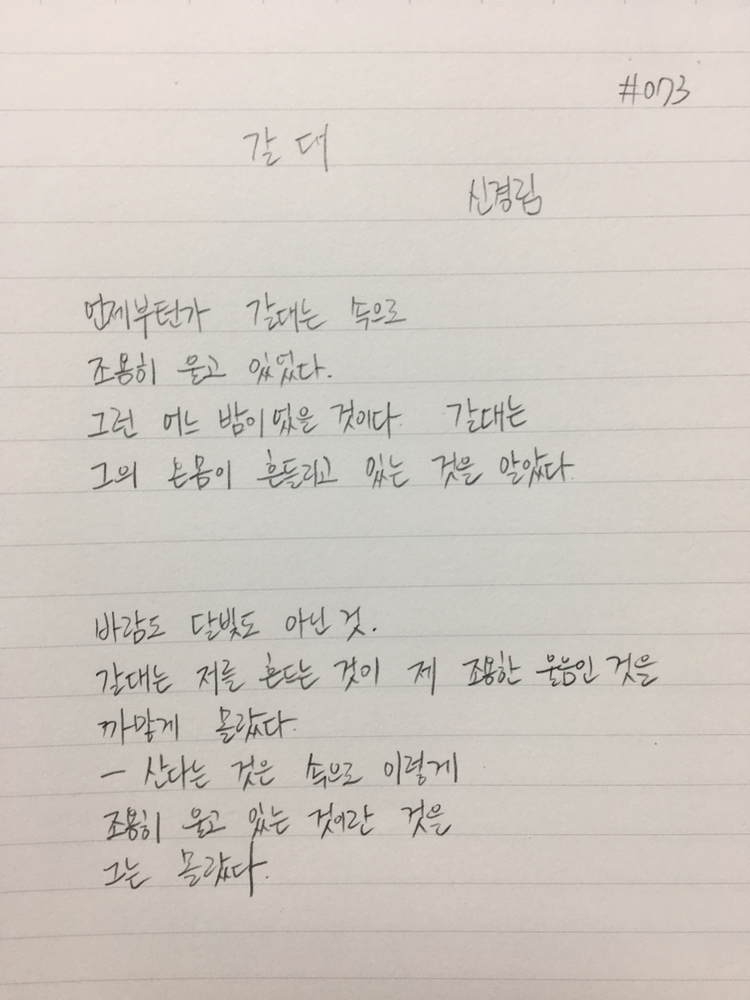 #073
갈 대
신경림
언제부턴가 갈대는 속으로
조용히 울고 있었다.
그런 어느 밤이었을 것이다. 갈대는
그의 온몸이 흔들리고 있는 것을 알았다.
바람도 달빛도 아닌 것.
갈대는 저를 흔드는 것이 제 조용한 울음인 것을
까맣게 몰랐다.
— 산다는 것은 속으로 이렇게
조용히 울고 있는 것이란 것을
그는 몰랐다.